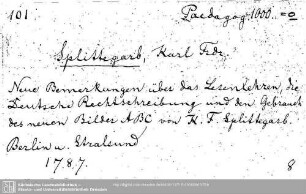 101 Paedagog. 1000. =o
Splittegarb, Karl Fdr.
Neue Bemerkungen über das Lesenlehren, die
Deutsche Rechtschreibung und den Gebrauch
des neuen Bilder ABC von K. F. Splittegarb.
Berlin u. Stralsund
1787. 8
Sächsische Landesbibliothek /